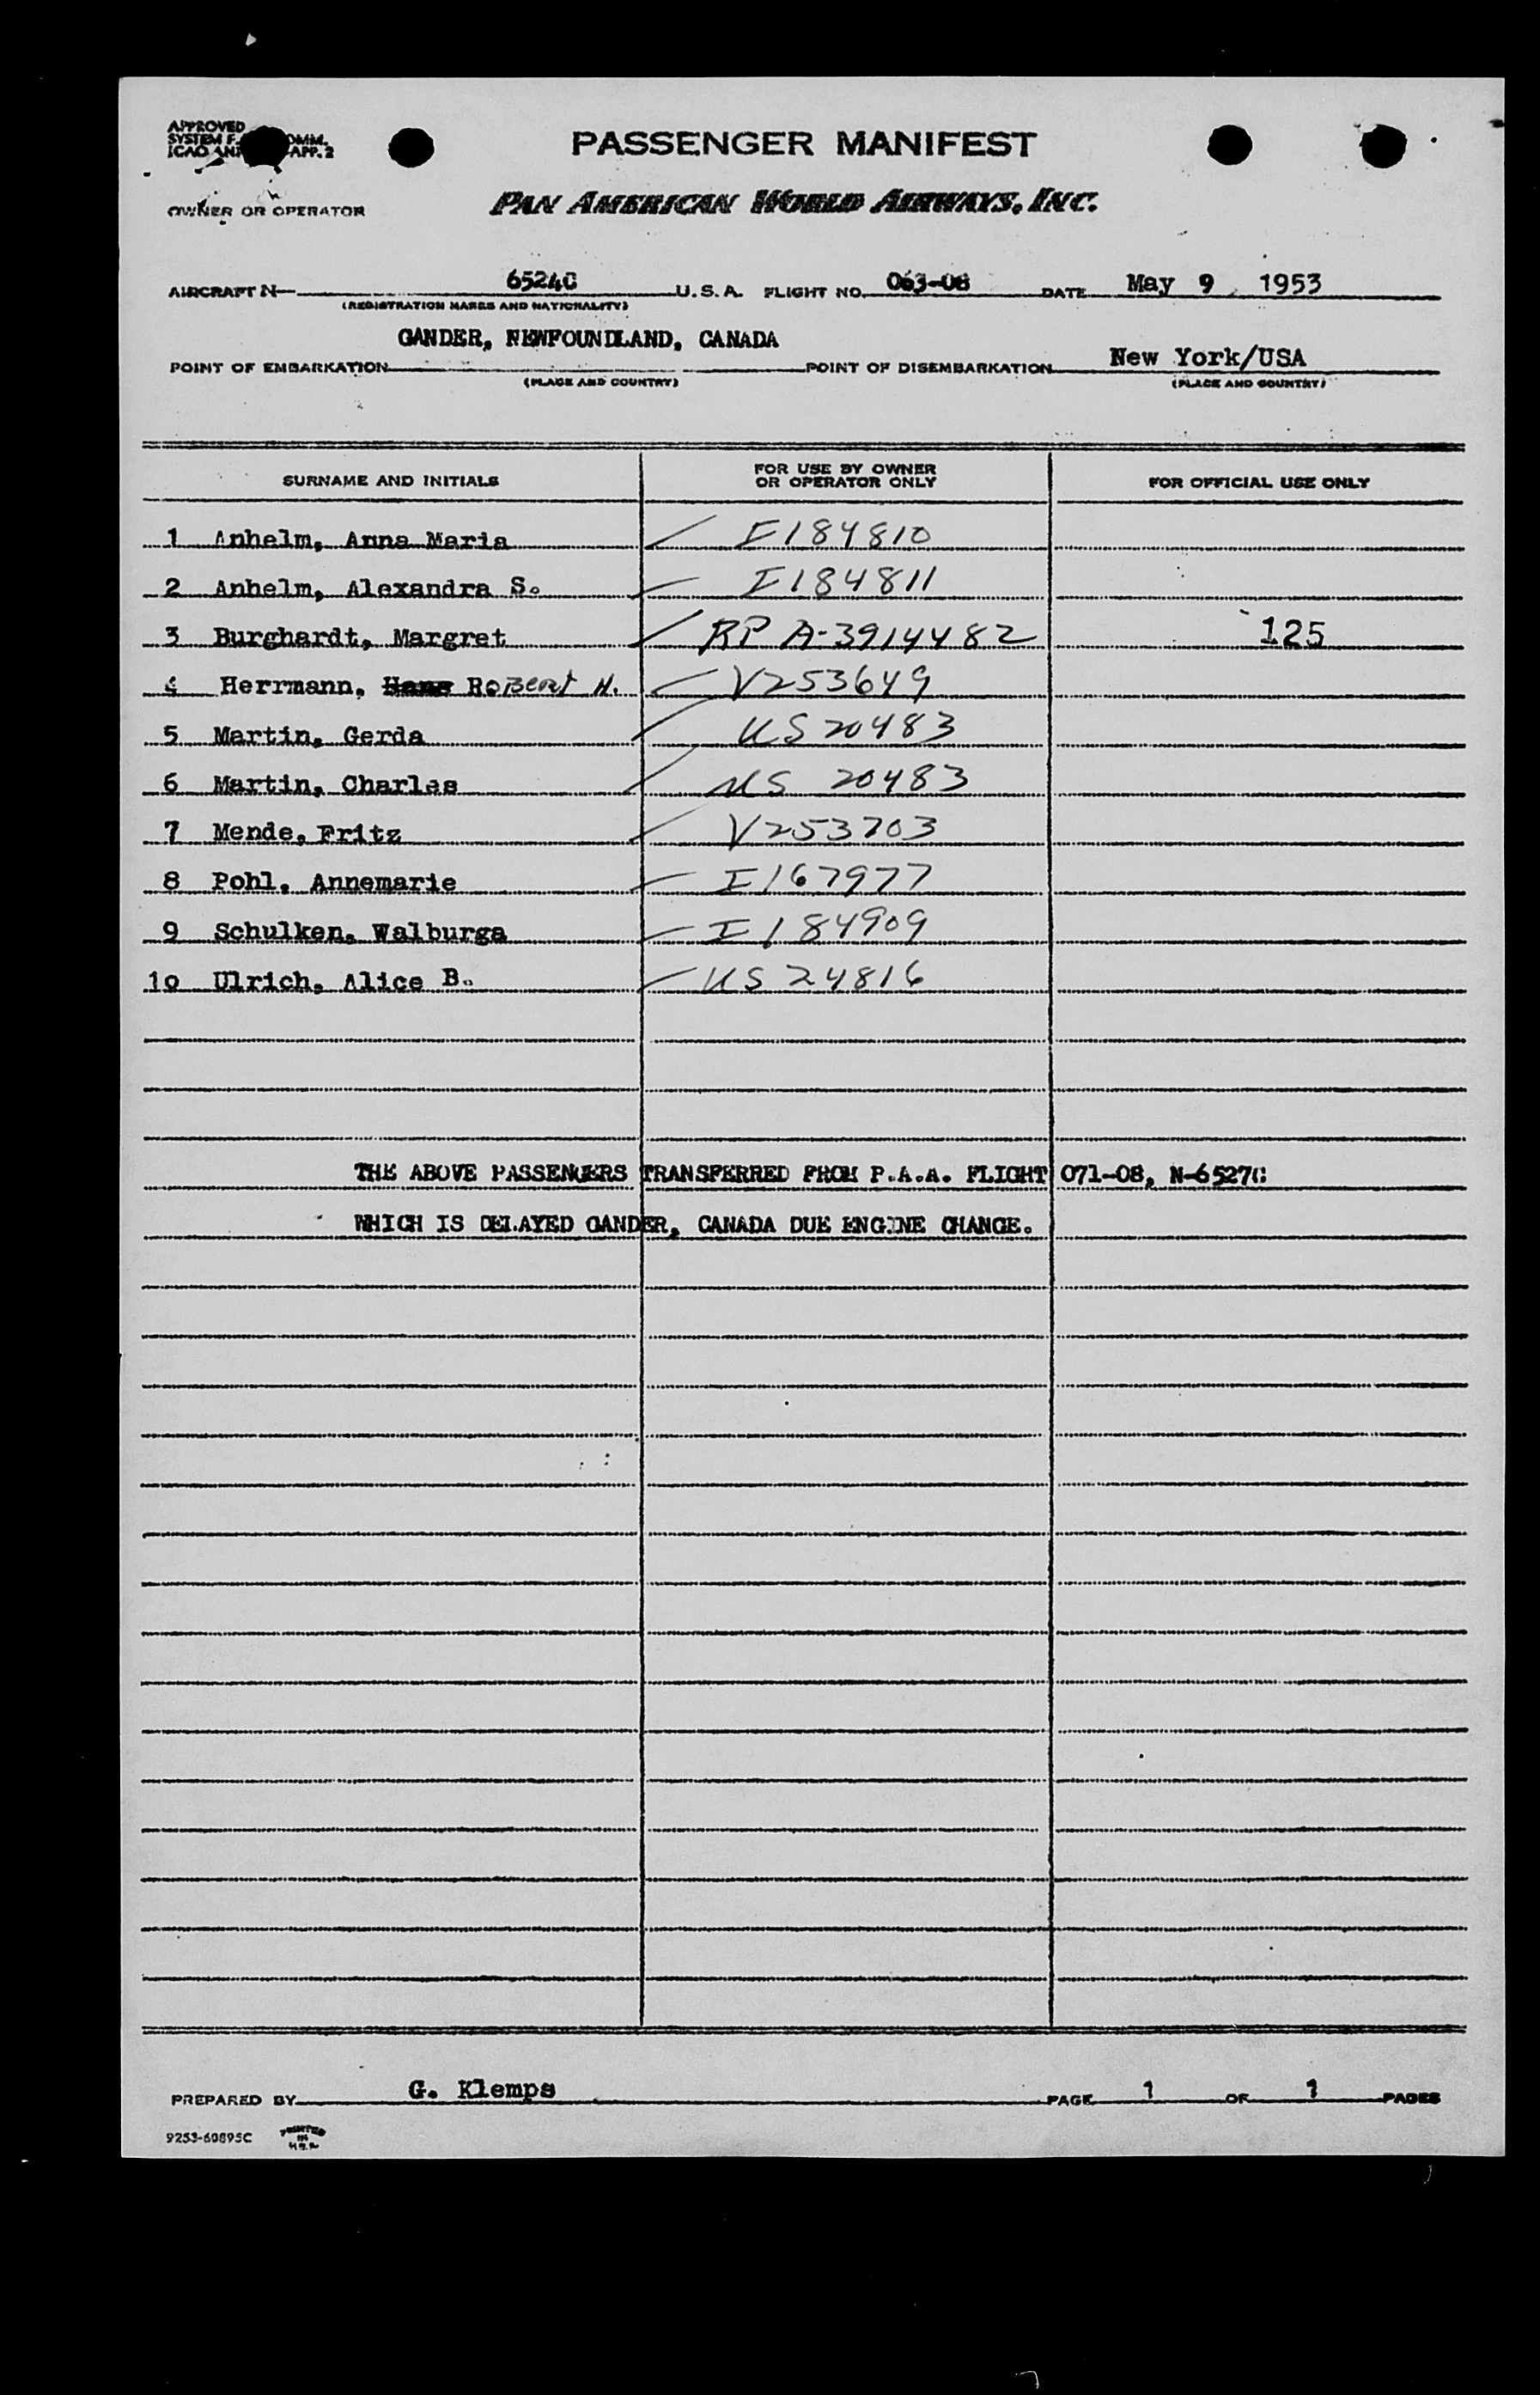 APPROVED
SYSTEM F OMM.
ICAO AN APP. 2
PASSENGER MANIFEST
OWNER OR OPERATOR PAN AMERICAN WORLD AIRWAYS, INC.
AIRCRAFT N 6524C U.S.A. FLIGHT NO. 063-08 DATE May 9 1953
(REGISTRATION MARKS AND NATIONALITY)
GANDER, NEWFOUNDLAND, CANADA
POINT OF EMBARKATION POINT OF DISEMBARKATION New York/USA
(PLACE AND COUNTRY) (PLACE AND COUNTRY)
SURNAME AND INITIALS FOR USE BY OWNER OR OPERATOR ONLY FOR OFFICIAL USE ONLY
1 Anhelm, Anna Maria I184810
2 Anhelm, Alexandra S. I184811
3 Burghardt, Margret RP A-3914482 125
4 Herrmann, Hans Robert H. V253649
5 Martin, Gerda US 20483
6 Martin, Charles US 20483
7 Mende, Fritz V253703
8 Pohl, Annemarie I167977
9 Schulken, Walburga I184909
10 Ulrich, Alice B. US 24816
THE ABOVE PASSENGERS TRANSFERRED FROM P.A.A. FLIGHT 071-08, N-6527C
WHICH IS DELAYED GANDER, CANADA DUE ENGINE CHANGE.
PREPARED BY G. Klemps PAGE 1 OF 1 PAGES
9253-60895C PRINTED IN U.S.A.